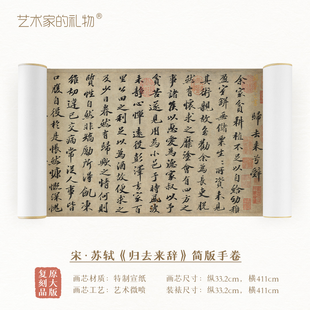 艺术家的礼物®
歸去来兮辭
余家貧耕植不足以自給幼稚
盈室缾無儲粟生生所資未見
其術親故多勸余為長吏脫
然有懷求之靡途會有四方之
事諸侯以惠愛為德家叔以余
貧苦遂見用為小邑于時風波
未靜心憚遠役彭澤去家百
里公田之利足以為酒故便求之
及少日眷然有歸歟之情何則
質性自然非矯勵所得飢凍
雖切違己交病嘗從人事皆
口腹自役於是悵然慷慨深愧
宋·苏轼《归去来辞》简版手卷
原大版
复刻品
画芯材质：特制宣纸
画芯尺寸：纵33.2cm，横411cm
画芯工艺：艺术微喷
装裱尺寸：纵33.2cm，横411cm